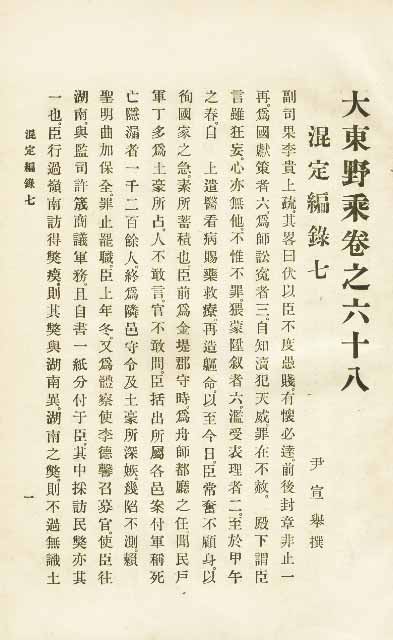 大東野乘卷之六十八
混定編錄七
尹宣舉撰
副司果李貴上疏。其畧曰伏以臣不度愚賤。有懷必達。前後封章非止一
再。爲國獻策者六。爲師訟寃者三。自知瀆犯天威。罪在不赦。 殿下謂臣
言雖狂妄。心亦無他。不惟不罪。猥蒙陞叙者六。濫受表理者二。至於甲午
之春。自 上遣醫看病賜藥救療。再造軀命。以至今日。臣常奮不顧身。以
徇國家之急。素所蓄積也。臣前爲金堤郡守時。爲舟師都廳之任。聞民戶
軍丁多爲土豪所占。人不敢言。官不敢問。臣括出所屬各邑案付軍稱死
亡隱漏者一千二百餘人。終爲隣邑守令及土豪所深嫉。幾陷不測。賴
聖明曲加保全。罪止罷職。臣上年冬。又爲體察使李德馨召募官。使臣往
湖南。與監司許筬商議軍務。且自書一紙分付于臣。其中採訪民獘亦其
一也。臣行過嶺南訪得獘瘼。則其獘與湖南異。湖南之獘。則不過無識土
混定編錄七
一